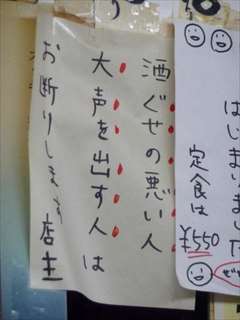 酒ぐせの悪い人
大声を出す人は
お断りします 店主
はじまりました
定食は
¥550